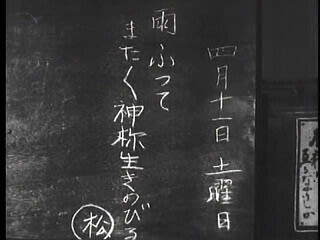 四月十一日 土曜日
雨ふって
またく神称生きのびる
松